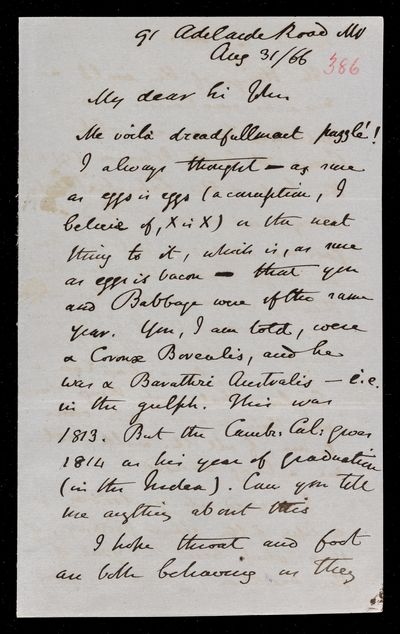 91 Adelaide Road NW
Aug 31/66
386
My dear Sir John
Me voilà dreadfullment puzzlé!
I always thought — as sure
as eggs is eggs (a corruption, I
believe of, X is X) or the next
thing to it, which is, as sure
as eggs is bacon — that you
and Babbage were of the same
year. You, I am told, were
α Coronæ Borealis, and he
was α Barathri Australis — i.e.
in the gulph. This was
1813. But the Cambr: Cal: gives
1814 as his year of graduation
(in the Index). Can you tell
me anything about this
I hope throat and foot
are both behaving as they